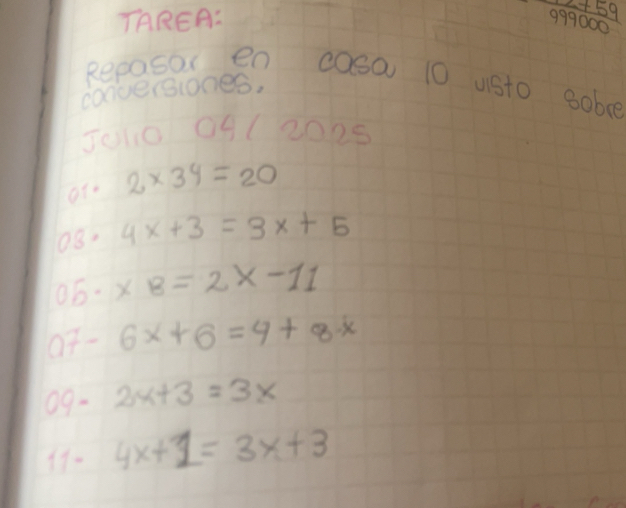 759
999000
TAREA:
Repasar en casa lo visto sobre
conversiones.
Julio 04/2025
01. 2x34=20
03. 4x+3=3x+5
05. x 8=2x-11
07- 6x+6=4+8x
09- 2x+3=3x
11- 4x+1=3x+3